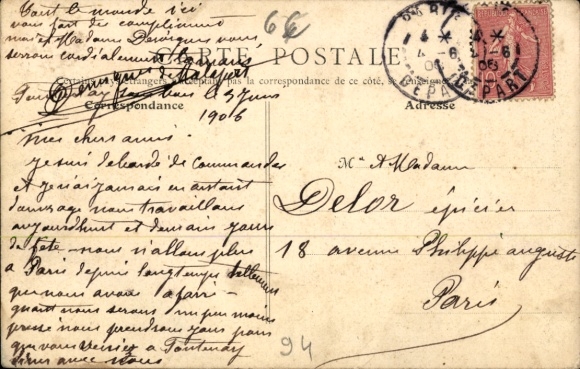 Tout le monde ici
vous fait des compliments
moi et Madame Derviques vous
serrons cordialement
66
CARTE POSTALE
Certains pays étrangers n'acceptant pas la correspondance de ce côté, se renseigner
Correspondance
Adresse
3 Juin
1906
Mes chers amis
Je suis débordé de commandes
et je n'ai jamais un instant
d'ouvrage nous travaillons
aujourd'hui et demain jours
de fête - nous n'allons plus
à Paris depuis longtemps tellement
que nous avons à faire -
quant nous serons un peu moins
pressé nous prendrons jour pour
que vous veniez à Fontenay
diner avec nous
Mr et Madame
Delor épicier
18 avenue Philippe auguste
Paris
94
PARIS
DEPART
DEPART